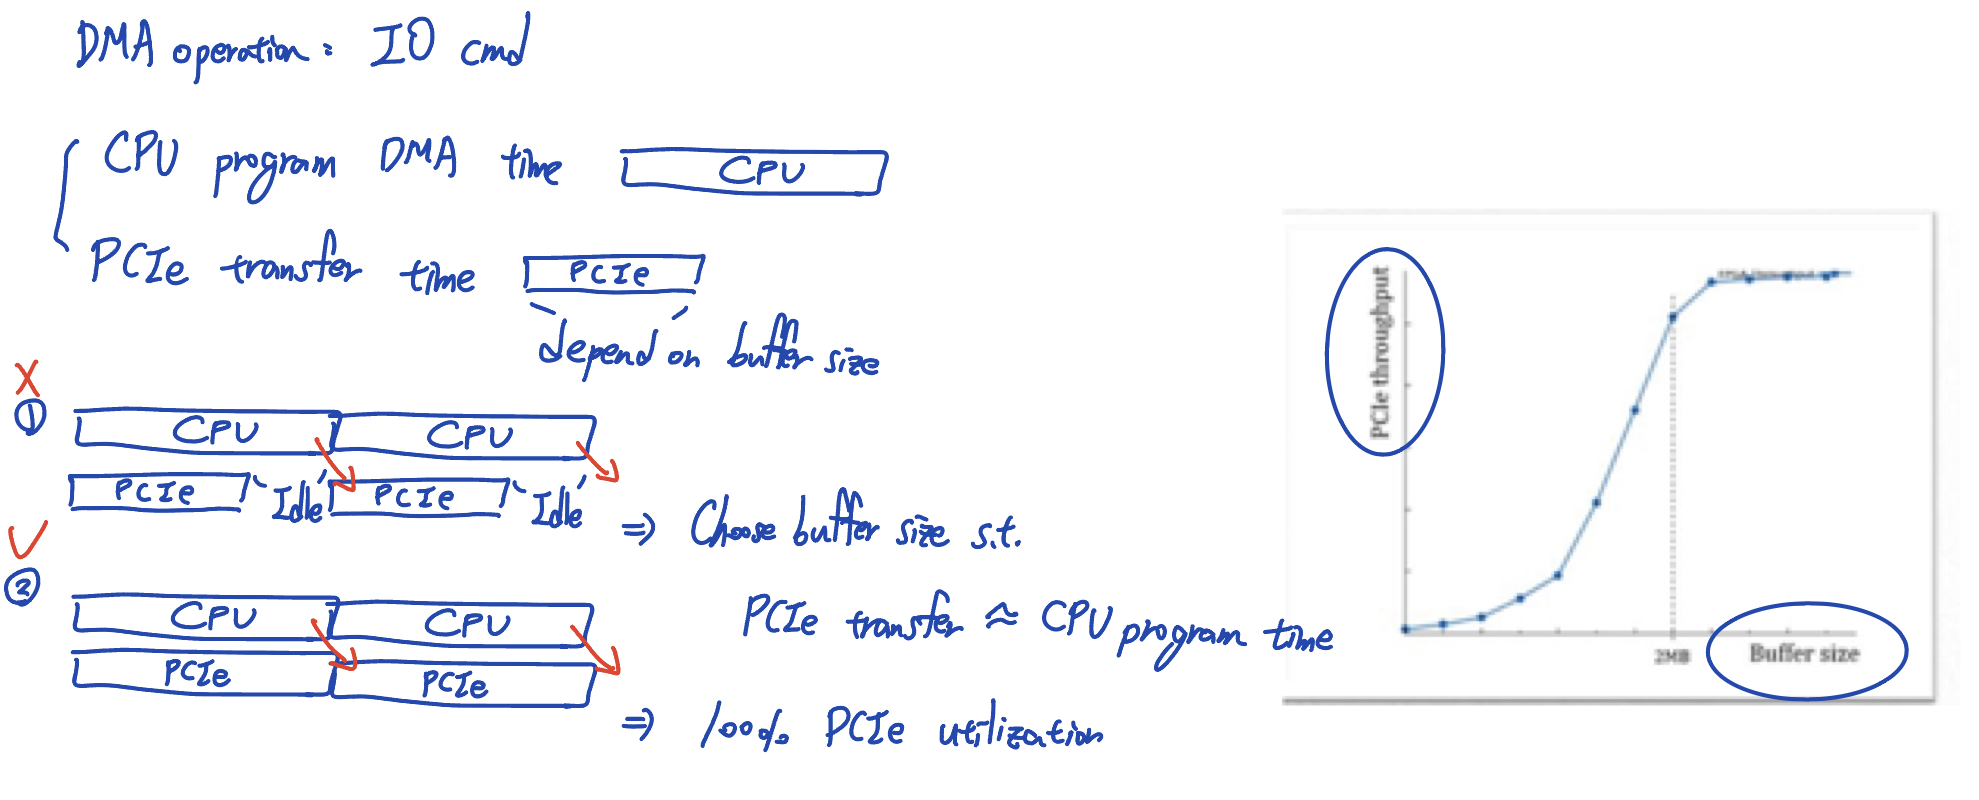 DMA operation : IO cmd
CPU program DMA time
CPU
PCIe transfer time
PCIe
depend on buffer size
X
①
CPU
CPU
PCIe
Idle
PCIe
Idle
⇒ Choose buffer size s.t.
PCIe transfer ≈ CPU program time
②
CPU
CPU
PCIe
PCIe
⇒ 100% PCIe utilization
PCIe throughput
2MB
Buffer size